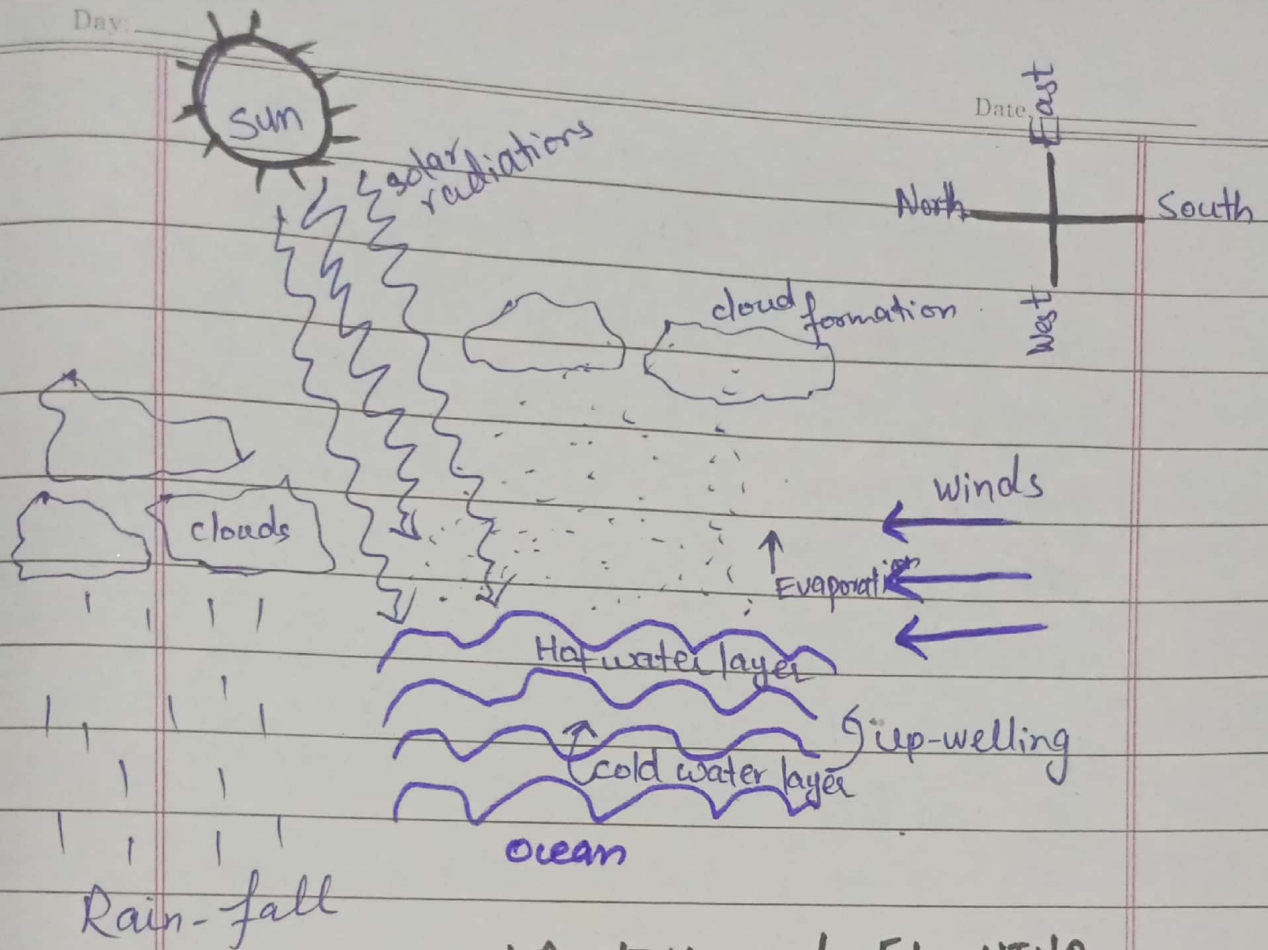 Day:
Date
Sun
solar
radiations
East
North
South
West
cloud formation
clouds
Winds
Evaporation
Hot water layer
up-welling
cold water layer
Ocean
Rain-fall